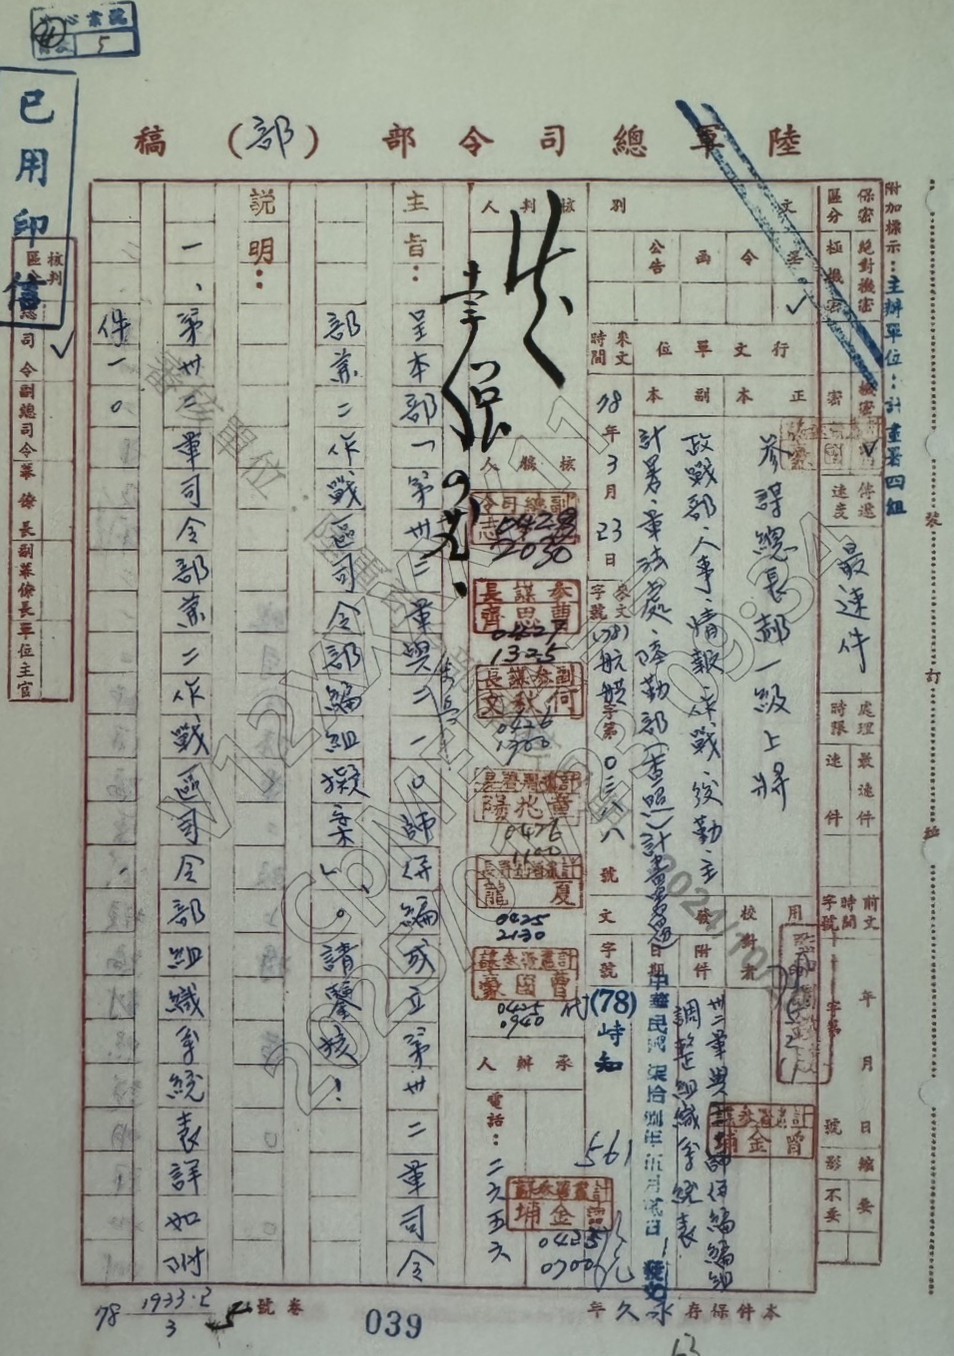 5
已用印
陸軍總司令部(部)稿
附加標示：主辦單位：計畫署四組
保密區分
絕對機密
極機密
機密
密
傳遞速度
最速件
處理時限
最速件
速件
前文時間字號
年月日
字第
號
縮影
要
不要
文別
呈
令
函
公告
行文單位
正本
副本
參謀總長郝一級上將
政戰部、人事、情報、作戰、後勤、主
計署、軍法處、陸勤部
來文時間
78年3月23日
來文字號
號
校對者
附件
卅二軍與二一〇師併編編組
調整組織系統表
發文
日期
中華民國柒拾捌年伍月貳日
發文
字號
(78)峙知
561
核判人
核稿人
副總司令
0428
2030
參謀長
曹思齊
0427
1325
副參謀長
何秋文
0426
1900
0426
1100
夏龍
0425
2130
曹國豪
0425
0940
代
承辦人
電話：二六五六
0425
0700
主旨：呈本部「第卅二軍與二一〇師併編成立第卅二軍司令
部兼二作戰區司令部編組擬案」。請鑒核！
說明：
一、第卅二軍司令部兼二作戰區司令部組織系統表詳如附
件一。
核判區分
總司令
副總司令
幕僚長
副幕僚長
單位主官
裝
訂
線
本件保存永久年
卷號
78
1933.2
3
039